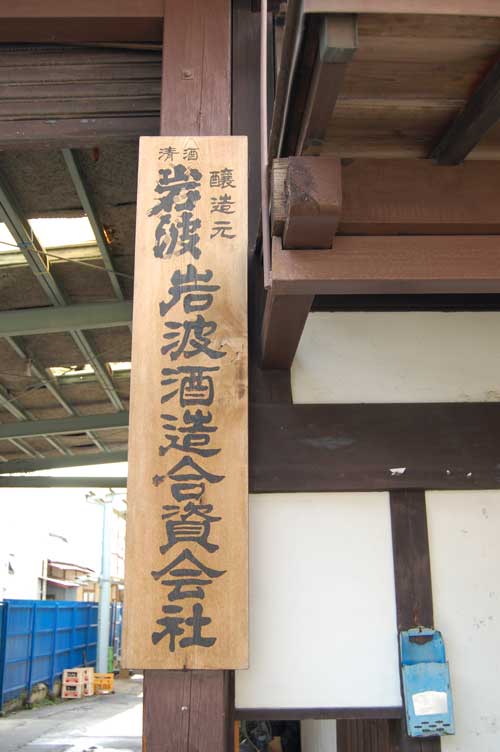 清酒
岩波
醸造元
岩波酒造合資会社